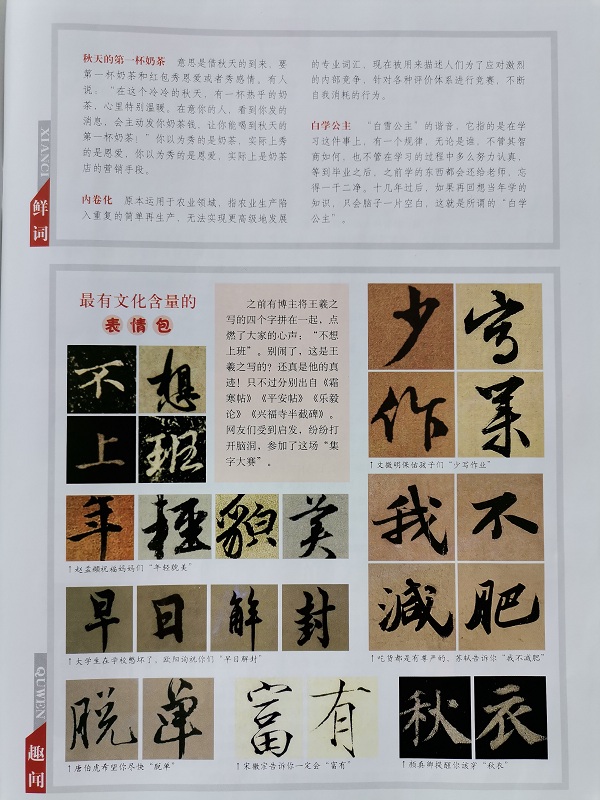 秋天的第一杯奶茶 意思是借秋天的到来，要
第一杯奶茶和红包秀恩爱或者秀感情。有人
说，“在这个冷冷的秋天，有一杯热乎的奶
茶，心里特别温暖。在意你的人，看到你发的
消息，会主动发你奶茶钱，让你能喝到秋天的
第一杯奶茶！”你以为秀的是奶茶，实际上秀
的是恩爱，你以为秀的是恩爱，实际上是奶茶
店的营销手段。
内卷化 原本运用于农业领域，指农业生产陷
入重复的简单再生产、无法实现更高级地发展
的专业词汇，现在被用来描述人们为了应对激烈
的内部竞争，针对各种评价体系进行竞赛，不断
自我消耗的行为。
白学公主 “白雪公主”的谐音，它指的是在学
习这件事上，有一个规律，无论是谁，不管其智
商如何，也不管在学习的过程中多么努力认真，
等到毕业之后，之前学的东西都会还给老师，忘
得一干二净。十几年过后，如果再回想当年学的
知识，只会脑子一片空白，这就是所谓的“白学
公主”。
XIANCI
鲜词
最有文化含量的
表情包
之前有博主将王羲之
写的四个字拼在一起，点
燃了大家的心声：“不想
上班”。别闹了，这是王
羲之写的？还真是他的真
迹！只不过分别出自《霜
寒帖》《平安帖》《乐毅
论》《兴福寺半截碑》。
网友们受到启发，纷纷打
开脑洞，参加了这场“集
字大赛”。
不想
上班
年轻貌美
↑赵孟頫祝福妈妈们“年轻貌美”
早日解封
↑大学生在学校憋坏了，欧阳询祝你们“早日解封”
脱单
↑唐伯虎希望你尽快“脱单”
富有
↑宋徽宗告诉你一定会“富有”
少写
作业
↑文徵明保佑孩子们“少写作业”
我不
減肥
↑吃货都是有尊严的，苏轼告诉你“我不减肥”
秋衣
↑颜真卿提醒你该穿“秋衣”
QUWEN
趣闻